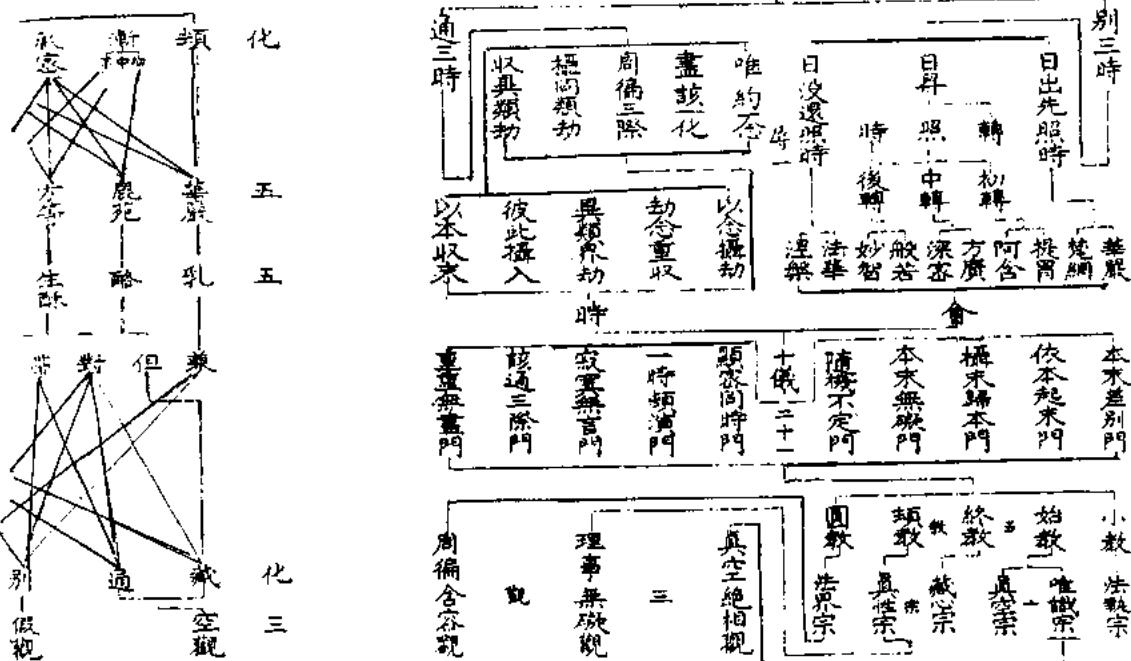 別三時
日出先照時
日昇
轉
照
時
日没還照時
初轉
中轉
後轉
華嚴
梵網
提胃
阿含
方廣
深密
般若
妙智
法華
涅槃
會
通三時
唯約一念
盡該一化
周徧三際
攝同類劫
收異類劫
以念攝劫
劫念重收
異類界劫
彼此攝入
以本收末
時
本末差別門
依本起末門
攝末歸本門
本末無礙門
隨機不定門
十儀
二十一
顯密同時門
一時頓演門
寂寞無言門
該通三際門
重重無盡門
小教
始教
五
終教
教
頓教
圓教
法數宗
唯識宗
真空宗
藏心宗
宗
真性宗
法界宗
真空絕相觀
三
理事無礙觀
觀
周徧含容觀
化
頓
漸
秘密
五
華嚴
鹿苑
方等
五
乳
酪
生酥
兼
但
對
帶
化
藏
通
別
三
空觀
假觀